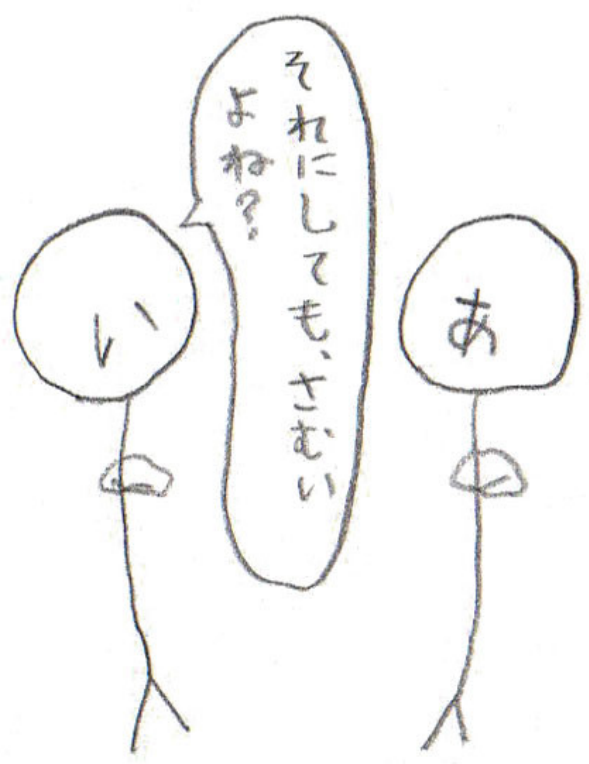 あ
それにしても、さむい
よね？
い